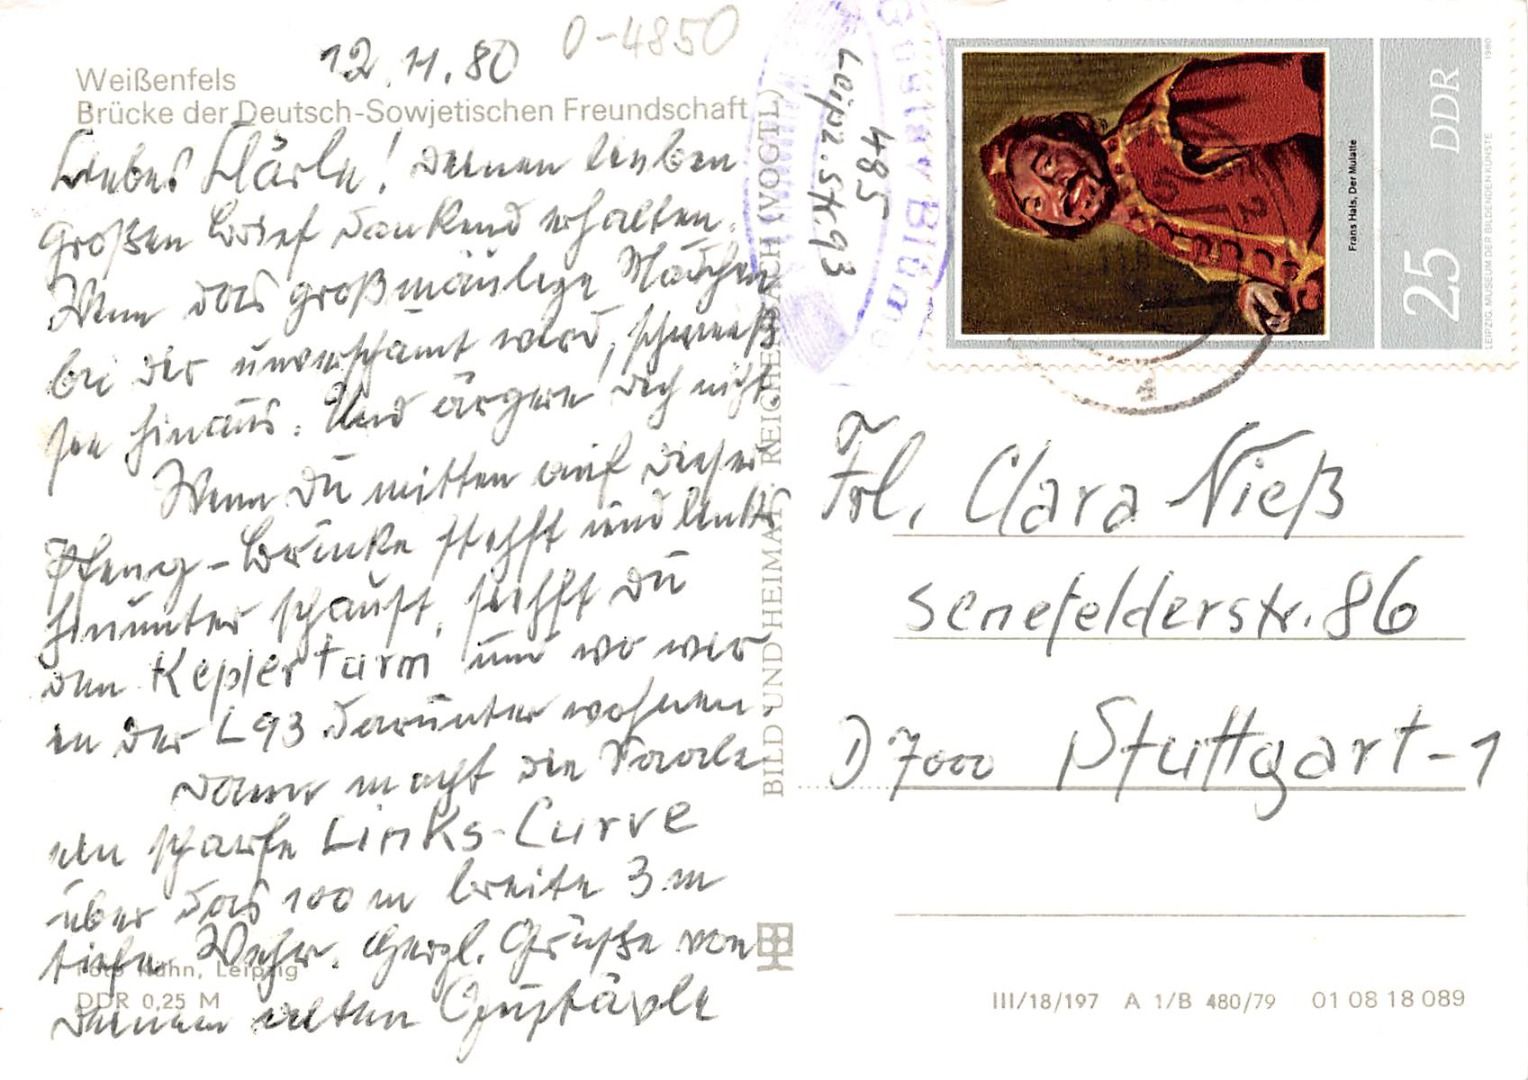 12.11.80
0-4850
Weißenfels
Brücke der Deutsch-Sowjetischen Freundschaft
Liebes Klärle! Deinen lieben
großen Brief dankend erhalten.
Wenn das großmäulige Mädchen
bei dir unverschämt wird, schmeiß
sie hinaus. Und ärgere dich nicht.
Wenn Du mitten auf dieser
-Brücke stehst und links
hinunter schaust, siehst Du
den Keplerturm und wo wir
in der L93 darunter wohnen.
Dann macht die Saale
eine scharfe Links-Curve
über das 100 m breite 3 m
tiefe Wehr. Herzl. Grüße von
Deinem alten Gustävle
Foto Kühn, Leipzig
DDR 0,25 M
BILD UND HEIMAT REICHENBACH (VOGTL)
Gustav Blü
485
Leipz. Str. 93
Frans Hals, Der Mulatte
25 DDR
LEIPZIG, MUSEUM DER BILDENDEN KÜNSTE 1980
Frl. Clara Nieß
Senefelderstr. 86
D 7000 Stuttgart-1
III/18/197 A 1/B 480/79 01 08 18 089